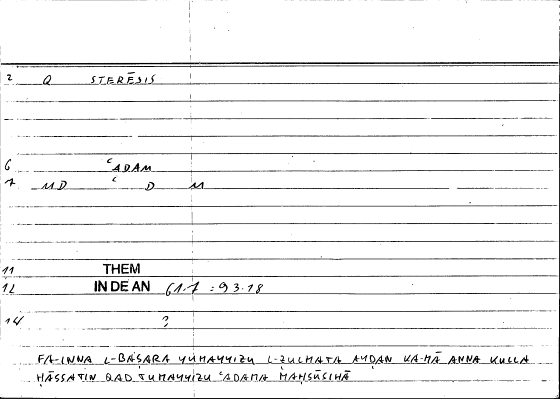 2 Q STERĒSIS
6 ʿADAM
7 MD ʿ D M
11 THEM
12 IN DE AN 61.7 : 93.18
14 ?
FA-INNA L-BAṢARA YUMAYYIZU L-ẒULMATA AYḌAN KA-MĀ ANNA KULLA
ḤĀSSATIN QAD TUMAYYIZU ʿADAMA MAḤSŪSIHĀ